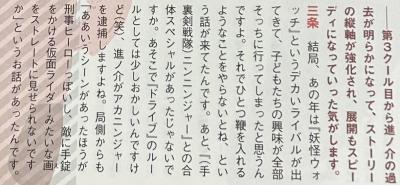 ――第3クール目から進ノ介の過
去が明らかになって、ストーリー
の縦軸が強化され、展開もスピー
ディになっていった気がします。
三条　結局、あの年は『妖怪ウォ
ッチ』というデカいライバルが出
てきて、子どもたちの興味が全部
そっちに行ってしまったと思うん
ですよ。それでひとつ鞭を入れる
ようなことをやらないとね、とい
う話が来てたんです。あと、『〈手
裏剣戦隊〉ニンニンジャー』との合
体スペシャルがあったじゃないで
すか。あそこで『ドライブ』のルー
ルとしては少しおかしいんですけ
ど（笑）、進ノ介がアカニンジャー
を逮捕しますよね。局側からも
「ああいうシーンがあったほうが
刑事ヒーローっぽいし、敵に手錠
をかける仮面ライダーみたいな画
をストレートに見せられないです
か」というお話があったんです。